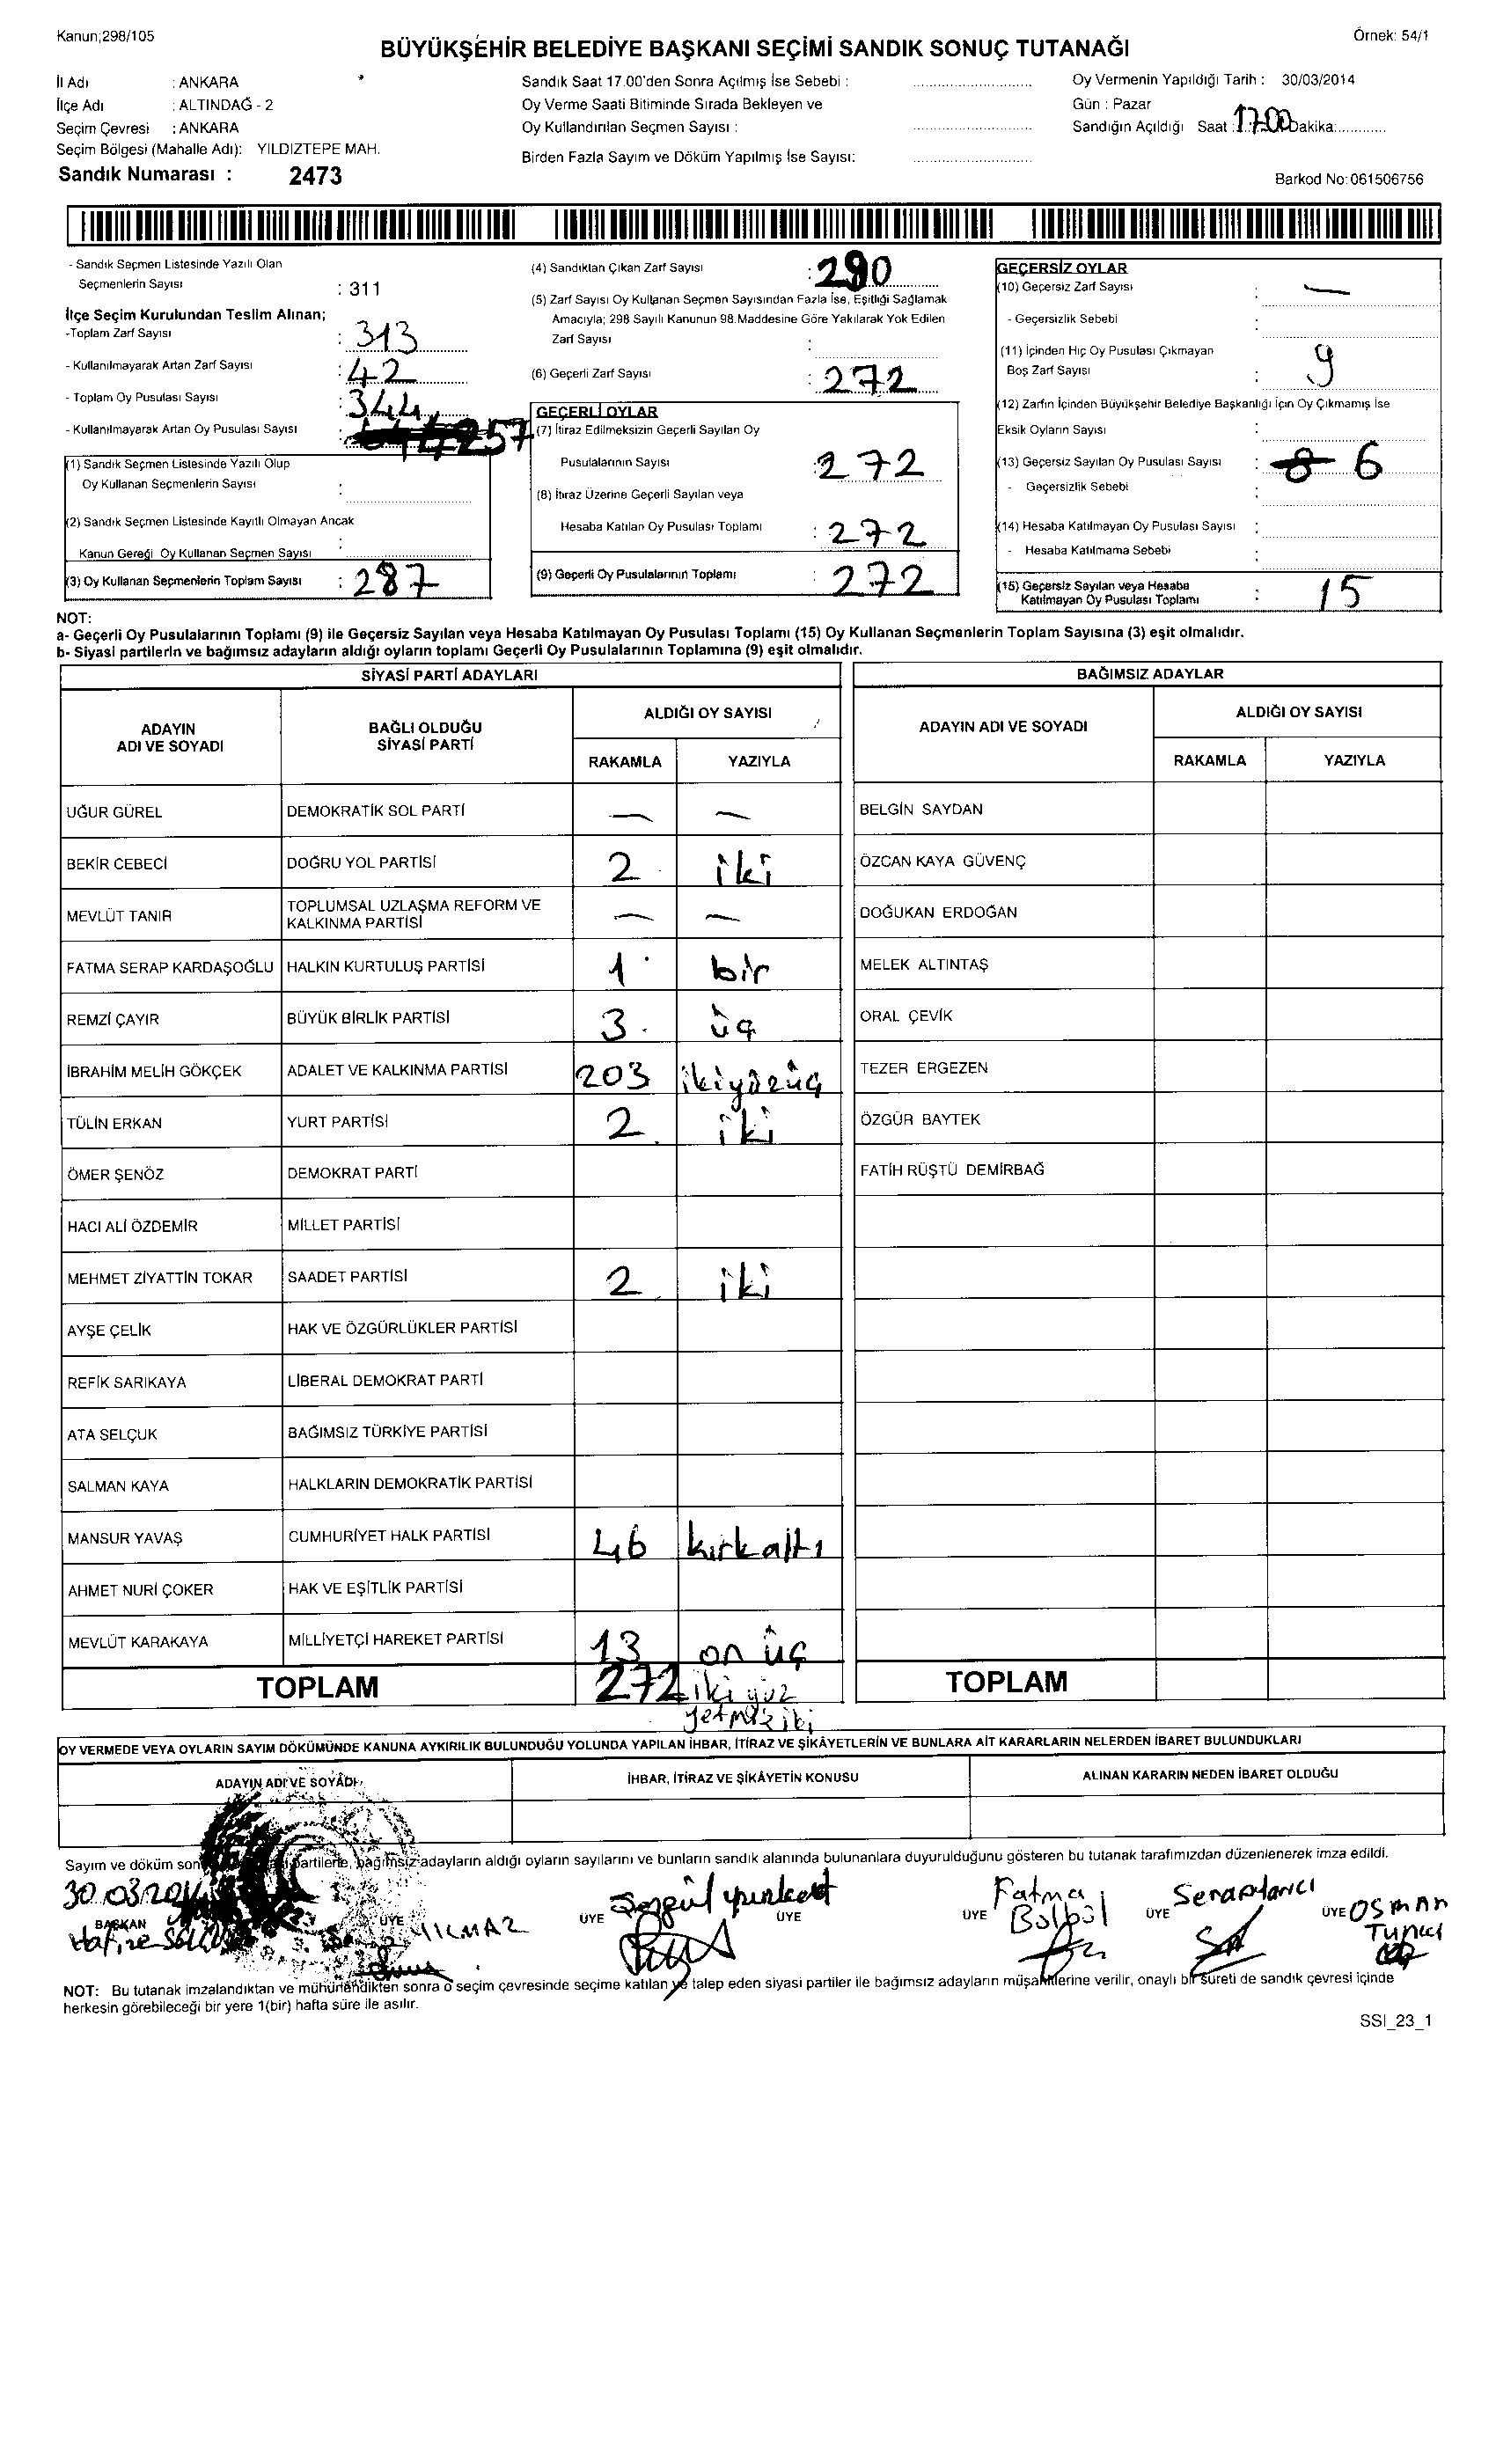 Kanun;298/105
Örnek: 54/1
BÜYÜKŞEHİR BELEDİYE BAŞKANI SEÇİMİ SANDIK SONUÇ TUTANAĞI
İl Adı : ANKARA
İlçe Adı : ALTINDAĞ - 2
Seçim Çevresi : ANKARA
Seçim Bölgesi (Mahalle Adı): YILDIZTEPE MAH.
Sandık Numarası : 2473
Sandık Saat 17.00'den Sonra Açılmış İse Sebebi :
Oy Verme Saati Bitiminde Sırada Bekleyen ve
Oy Kullandırılan Seçmen Sayısı :
Birden Fazla Sayım ve Döküm Yapılmış İse Sayısı:
Oy Vermenin Yapıldığı Tarih : 30/03/2014
Gün : Pazar
Sandığın Açıldığı Saat : 17.00 Dakika:
Barkod No: 061506756
- Sandık Seçmen Listesinde Yazılı Olan
Seçmenlerin Sayısı : 311
İlçe Seçim Kurulundan Teslim Alınan;
-Toplam Zarf Sayısı : 313
- Kullanılmayarak Artan Zarf Sayısı : 42
- Toplam Oy Pusulası Sayısı : 344
- Kullanılmayarak Artan Oy Pusulası Sayısı : 57
(1) Sandık Seçmen Listesinde Yazılı Olup
Oy Kullanan Seçmenlerin Sayısı :
(2) Sandık Seçmen Listesinde Kayıtlı Olmayan Ancak
Kanun Gereği Oy Kullanan Seçmen Sayısı :
(3) Oy Kullanan Seçmenlerin Toplam Sayısı : 287
(4) Sandıktan Çıkan Zarf Sayısı : 290
(5) Zarf Sayısı Oy Kullanan Seçmen Sayısından Fazla İse, Eşitliği Sağlamak
Amacıyla; 298 Sayılı Kanunun 98.Maddesine Göre Yakılarak Yok Edilen
Zarf Sayısı :
(6) Geçerli Zarf Sayısı : 272
GEÇERLİ OYLAR
(7) İtiraz Edilmeksizin Geçerli Sayılan Oy
Pusulalarının Sayısı : 272
(8) İtiraz Üzerine Geçerli Sayılan veya
Hesaba Katılan Oy Pusulası Toplamı : 272
(9) Geçerli Oy Pusulalarının Toplamı : 272
GEÇERSİZ OYLAR
(10) Geçersiz Zarf Sayısı : —
- Geçersizlik Sebebi :
(11) İçinden Hiç Oy Pusulası Çıkmayan
Boş Zarf Sayısı : 9
(12) Zarfın İçinden Büyükşehir Belediye Başkanlığı İçin Oy Çıkmamış İse
Eksik Oyların Sayısı :
(13) Geçersiz Sayılan Oy Pusulası Sayısı : 8 6
- Geçersizlik Sebebi :
(14) Hesaba Katılmayan Oy Pusulası Sayısı :
- Hesaba Katılmama Sebebi :
(15) Geçersiz Sayılan veya Hesaba
Katılmayan Oy Pusulası Toplamı : 15
NOT:
a- Geçerli Oy Pusulalarının Toplamı (9) ile Geçersiz Sayılan veya Hesaba Katılmayan Oy Pusulası Toplamı (15) Oy Kullanan Seçmenlerin Toplam Sayısına (3) eşit olmalıdır.
b- Siyasi partilerin ve bağımsız adayların aldığı oyların toplamı Geçerli Oy Pusulalarının Toplamına (9) eşit olmalıdır.
SİYASİ PARTİ ADAYLARI
ADAYIN ADI VE SOYADI
BAĞLI OLDUĞU SİYASİ PARTİ
ALDIĞI OY SAYISI
RAKAMLA YAZIYLA
UĞUR GÜREL DEMOKRATİK SOL PARTİ — —
BEKİR CEBECİ DOĞRU YOL PARTİSİ 2 iki
MEVLÜT TANIR TOPLUMSAL UZLAŞMA REFORM VE KALKINMA PARTİSİ — —
FATMA SERAP KARDAŞOĞLU HALKIN KURTULUŞ PARTİSİ 1 bir
REMZİ ÇAYIR BÜYÜK BİRLİK PARTİSİ 3 üç
İBRAHİM MELİH GÖKÇEK ADALET VE KALKINMA PARTİSİ 203 ikiyüzüç
TÜLİN ERKAN YURT PARTİSİ 2 iki
ÖMER ŞENÖZ DEMOKRAT PARTİ
HACI ALİ ÖZDEMİR MİLLET PARTİSİ
MEHMET ZİYATTİN TOKAR SAADET PARTİSİ 2 iki
AYŞE ÇELİK HAK VE ÖZGÜRLÜKLER PARTİSİ
REFİK SARIKAYA LİBERAL DEMOKRAT PARTİ
ATA SELÇUK BAĞIMSIZ TÜRKİYE PARTİSİ
SALMAN KAYA HALKLARIN DEMOKRATİK PARTİSİ
MANSUR YAVAŞ CUMHURİYET HALK PARTİSİ 46 kırkaltı
AHMET NURİ ÇOKER HAK VE EŞİTLİK PARTİSİ
MEVLÜT KARAKAYA MİLLİYETÇİ HAREKET PARTİSİ 13 on üç
TOPLAM 272 iki yüz
yetmiş iki
BAĞIMSIZ ADAYLAR
ADAYIN ADI VE SOYADI
ALDIĞI OY SAYISI
RAKAMLA YAZIYLA
BELGİN SAYDAN
ÖZCAN KAYA GÜVENÇ
DOĞUKAN ERDOĞAN
MELEK ALTINTAŞ
ORAL ÇEVİK
TEZER ERGEZEN
ÖZGÜR BAYTEK
FATİH RÜŞTÜ DEMİRBAĞ
TOPLAM
OY VERMEDE VEYA OYLARIN SAYIM DÖKÜMÜNDE KANUNA AYKIRILIK BULUNDUĞU YOLUNDA YAPILAN İHBAR, İTİRAZ VE ŞİKAYETLERİN VE BUNLARA AİT KARARLARIN NELERDEN İBARET BULUNDUKLARI
ADAYIN ADI VE SOYADI
İHBAR, İTİRAZ VE ŞİKAYETİN KONUSU
ALINAN KARARIN NEDEN İBARET OLDUĞU
Sayım ve döküm partilerle, bağımsız adayların aldığı oyların sayılarını ve bunların sandık alanında bulunanlara duyurulduğunu gösteren bu tutanak tarafımızdan düzenlenerek imza edildi.
30.03.2014
BAŞKAN ÜYE YILMAZ ÜYE ÜYE ÜYE Fatma Bülbül ÜYE ÜYE OSMAN
NOT: Bu tutanak imzalandıktan ve mühürlendikten sonra o seçim çevresinde seçime katılan ve talep eden siyasi partiler ile bağımsız adayların müşahitlerine verilir, onaylı bir sureti de sandık çevresi içinde
herkesin görebileceği bir yere 1(bir) hafta süre ile asılır.
SSI_23_1